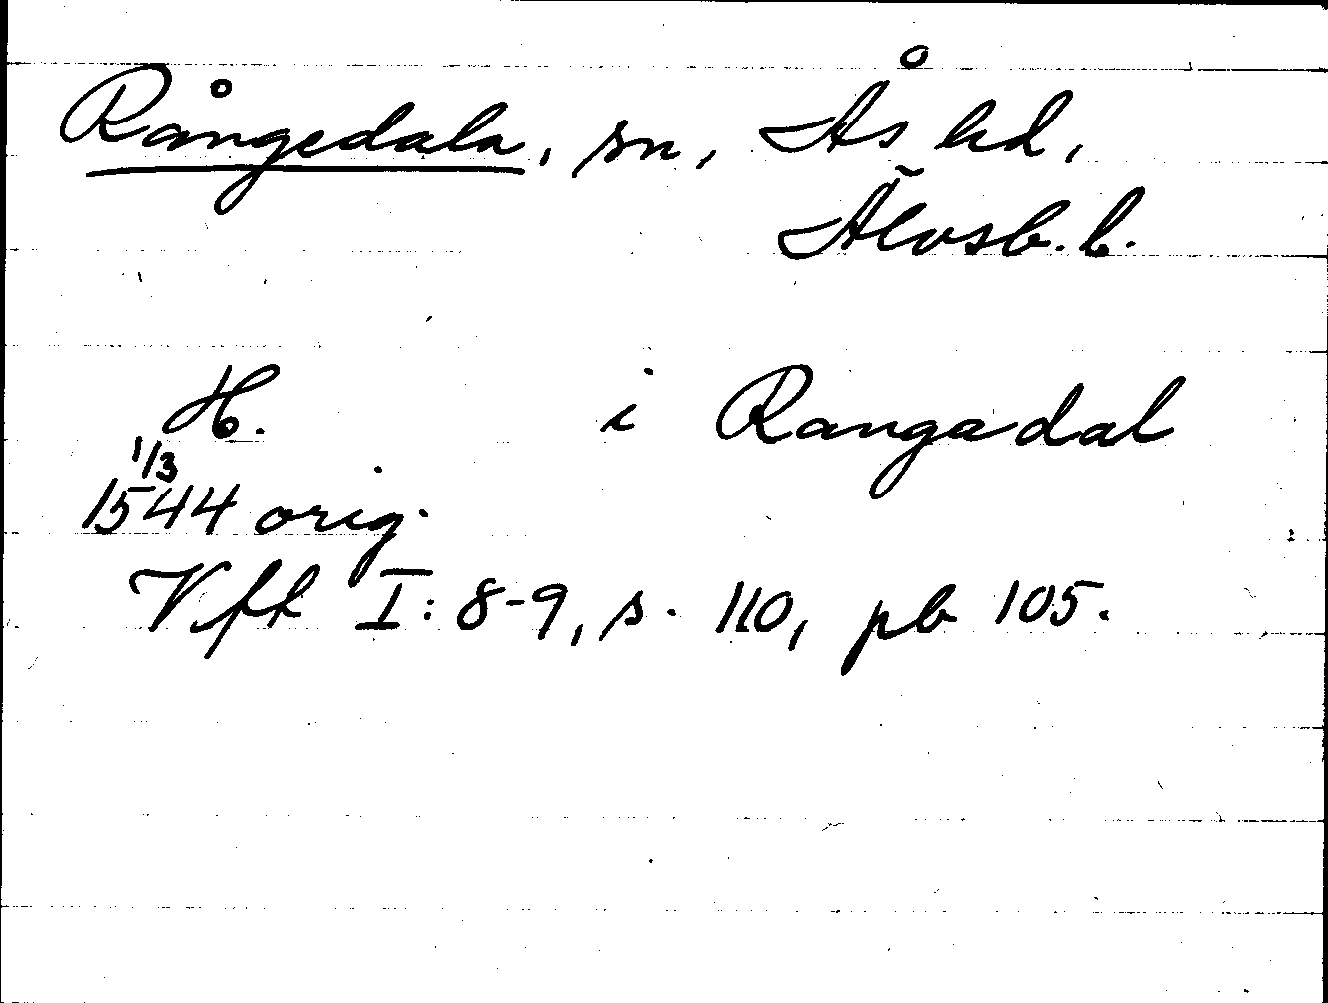 Rångedala, sn, Ås hd,
Älvsb. l.
H. i Rangadal
1/3
1544 orig.
Vft I: 8-9, s. 110, pb 105.